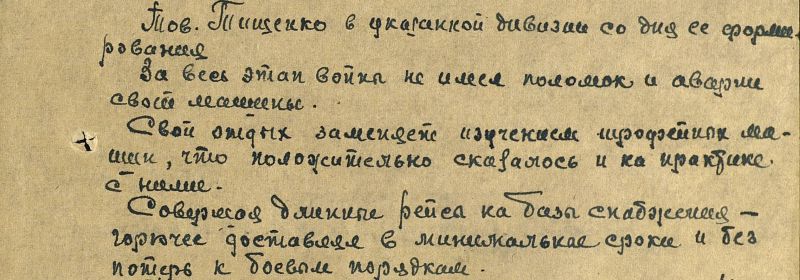 Тов. Тищенко в указанной дивизии со дня ее форми-
рования
За весь этап войны не имел поломок и аварии
своей машины.
Свой отдых заменяет изучением трофейных ма-
шин, что положительно сказалось и на практике
с ними.
Совершая длинные рейсы на базы снабжения –
горючее доставлял в минимальные сроки и без
потерь к боевым порядкам.